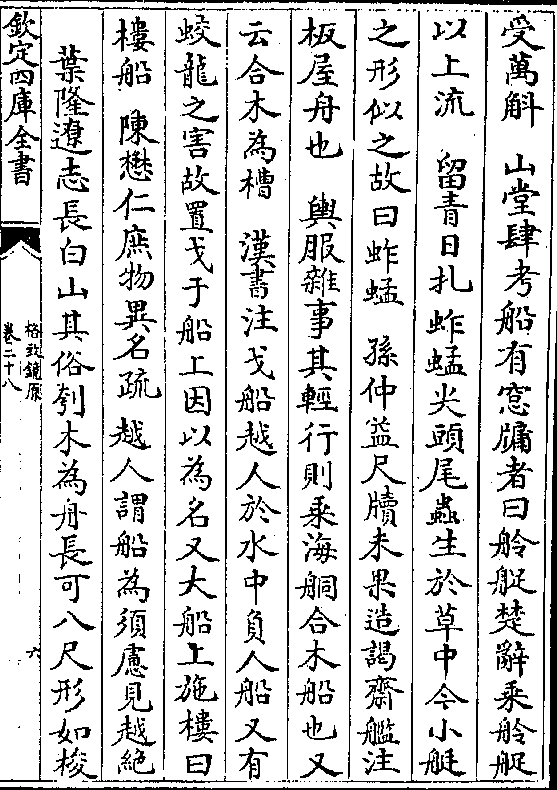 受萬斛　山堂肆考船有窓牖者曰舲艇楚辭乘舲艇
以上流　留青日札蚱蜢尖頭尾蟲生於草中今小艇
之形似之故曰蚱蜢　孫仲益尺牘未果造謁齋艦注
板屋舟也　輿服雜事其輕行則乘海䑺合木船也又
云合木為槽　漢書注戈船越人於水中負人船又有
蛟龍之害故置戈于船上因以為名又大船上施樓曰
樓船　陳懋仁庶物異名疏　越人謂船為須慮見越絶
葉隆遼志長白山其俗刳木為舟長可八尺形如梭
欽定四庫全書
格致鏡原
卷二十八
六